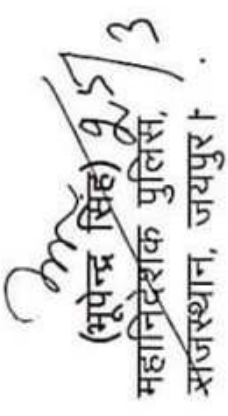 (भूपेन्द्र सिंह) 25/3
महानिदेशक पुलिस,
राजस्थान, जयपुर।